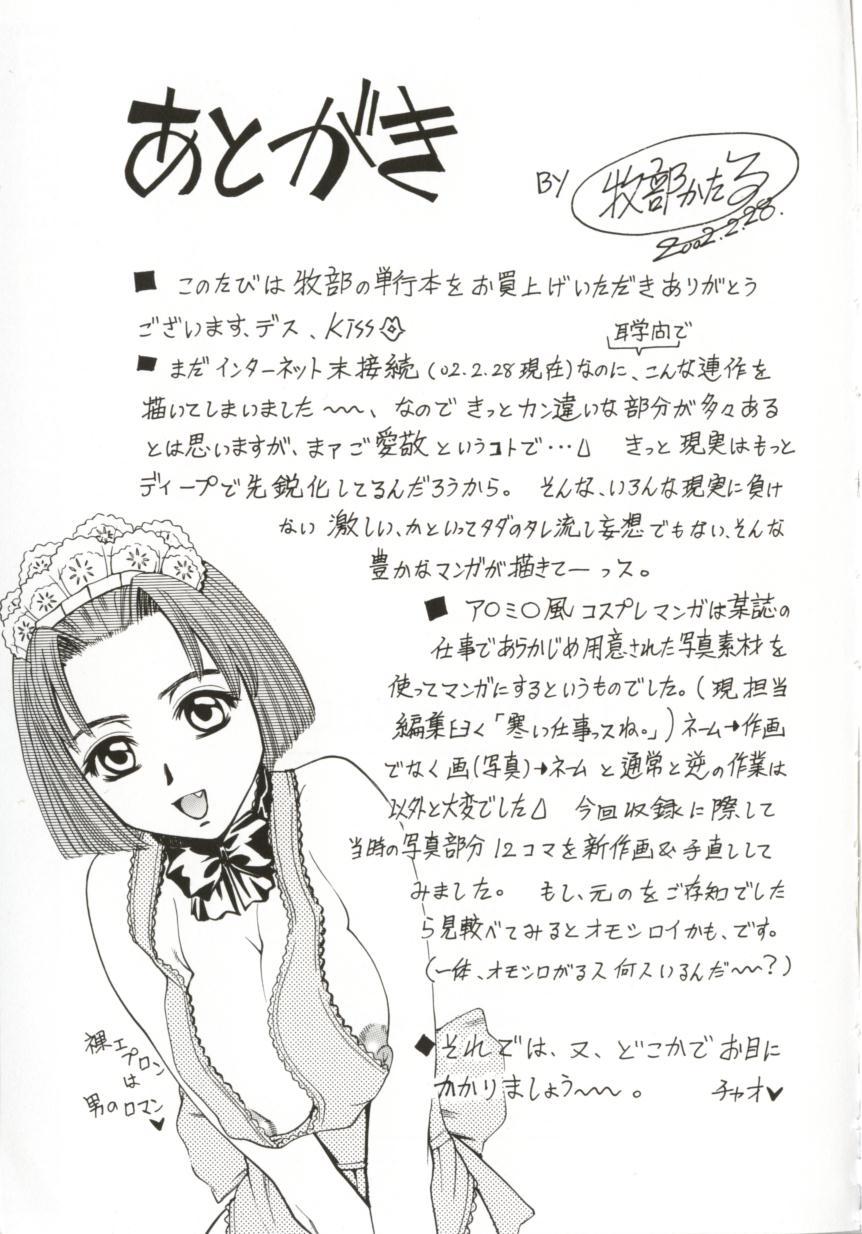 あとがき
BY 牧部かたる
2002.2.28.
■ このたびは牧部の単行本をお買上げいただきありがとう
ございます、デス、Kiss
耳学問で
■ まだインターネット末接続(02.2.28現在)なのに、こんな連作を
描いてしまいました〜〜、なので きっとカン違いな部分が多々ある
とは思いますが、まァご愛敬というコトで…
きっと現実はもっと
ディープで先鋭化してるんだろうから。 そんな、いろんな現実に負け
ない 激しい、かといってタダのタレ流し妄想でもない、そんな
豊かなマンガが描きてーっス。
■ ア○ミ○風コスプレマンガは某誌の
仕事であらかじめ用意された写真素材を
使ってマンガにするというものでした。(現担当
編集曰く「寒い仕事っスね。」)ネーム→作画
でなく画(写真)→ネームと通常と逆の作業は
以外と大変でした 今回収録に際して
当時の写真部分12コマを新作画&手直しして
みました。 もし、元のをご存知でした
ら見較べてみるとオモシロイかも、です。
(一体、オモシロがるス何スいるんだ〜〜?)
◆それでは、又、どこかでお目に
かかりましょう〜〜。 チャオ♥
裸エプロン
は
男のロマン
♥